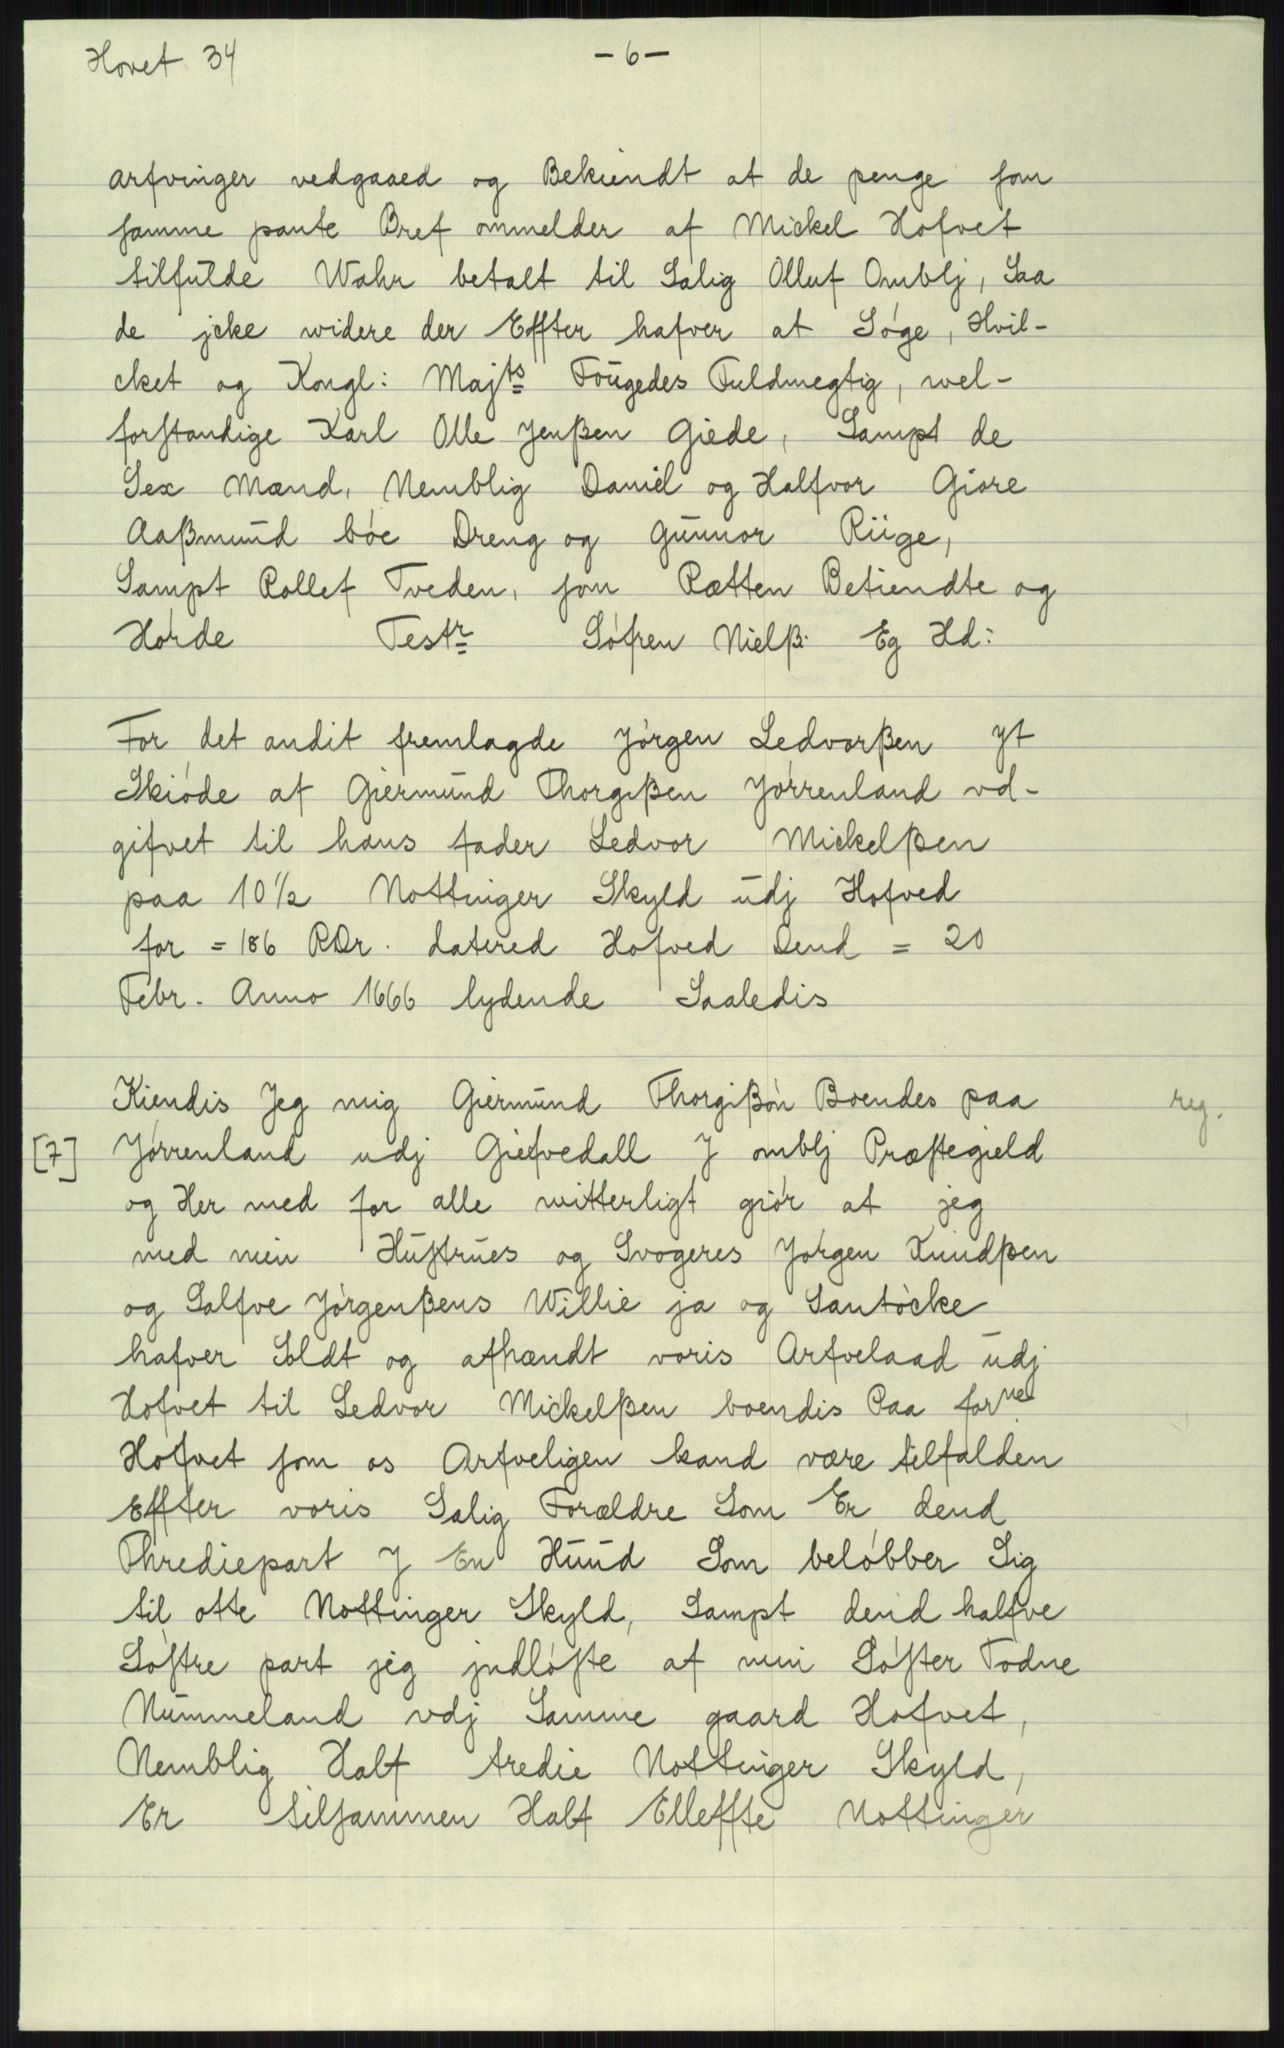 Hovet 34
- 6 -
arfvinger vedgaaed og Bekiendt at de penge som
samme pante Bref ommelder af Mickel Hofvet
tilfulde Wahr betalt til Salig Olluf Omblj, Saa
de jcke widere der Effter hafver at Søge, Hvil-
cket og Kongl: Majts Fougedes Fuldmegtig, wel-
forstandige Karl Olle Jenßen Giede, Sampt de
Sex Mænd, Nemblig Daniel og Halfvor Giøre
Aaßmund bøe Dreng og Gunnor Riige,
Sampt Rollef Tveden, som Rætten Betiendte og
Hørde Testr Søfren Nielß: Eg Hd:
For det andit fremlagde Jørgen Ledvorßen yt
Skiøde af Giermund Thorgißen Jørrenland vd-
gifvet til hans fader Ledvor Mickelßen
paa 10½ Nottinger Skyld udj Hofved
for = 186 RDr. datered Hofved Dend = 20
Febr. Anno 1666 lydende Saaledis
Kiendis Jeg mig Giermund Thorgißøn Boendes paa
reg.
[7] Jørrenland udj Giefvedall J omblj Præstegield
og Her med for alle witterligt giør at jeg
med min Hustrues og Svogeres Jørgen Knudßen
og Salfve Jørgenßens Willie ja og Santøcke
hafver Soldt og afhændt voris Arfvelaad udj
Hofvet til Ledvor Mickelßen boendis Paa forne
Hofvet som os Arfveligen kand være tilfalden
Effter voris Salig Forældre Som Er dend
Thrediepart J En Huud Som beløbber Sig
til otte Nottinger Skyld, Sampt dend halfve
Søstre part jeg jndløste af min Søster Todne
Nummeland vdj Samme gaard Hofvet,
Nemblig Half tredie Nottinger Skyld,
Er tilsammen Half Elleffte Nottinger